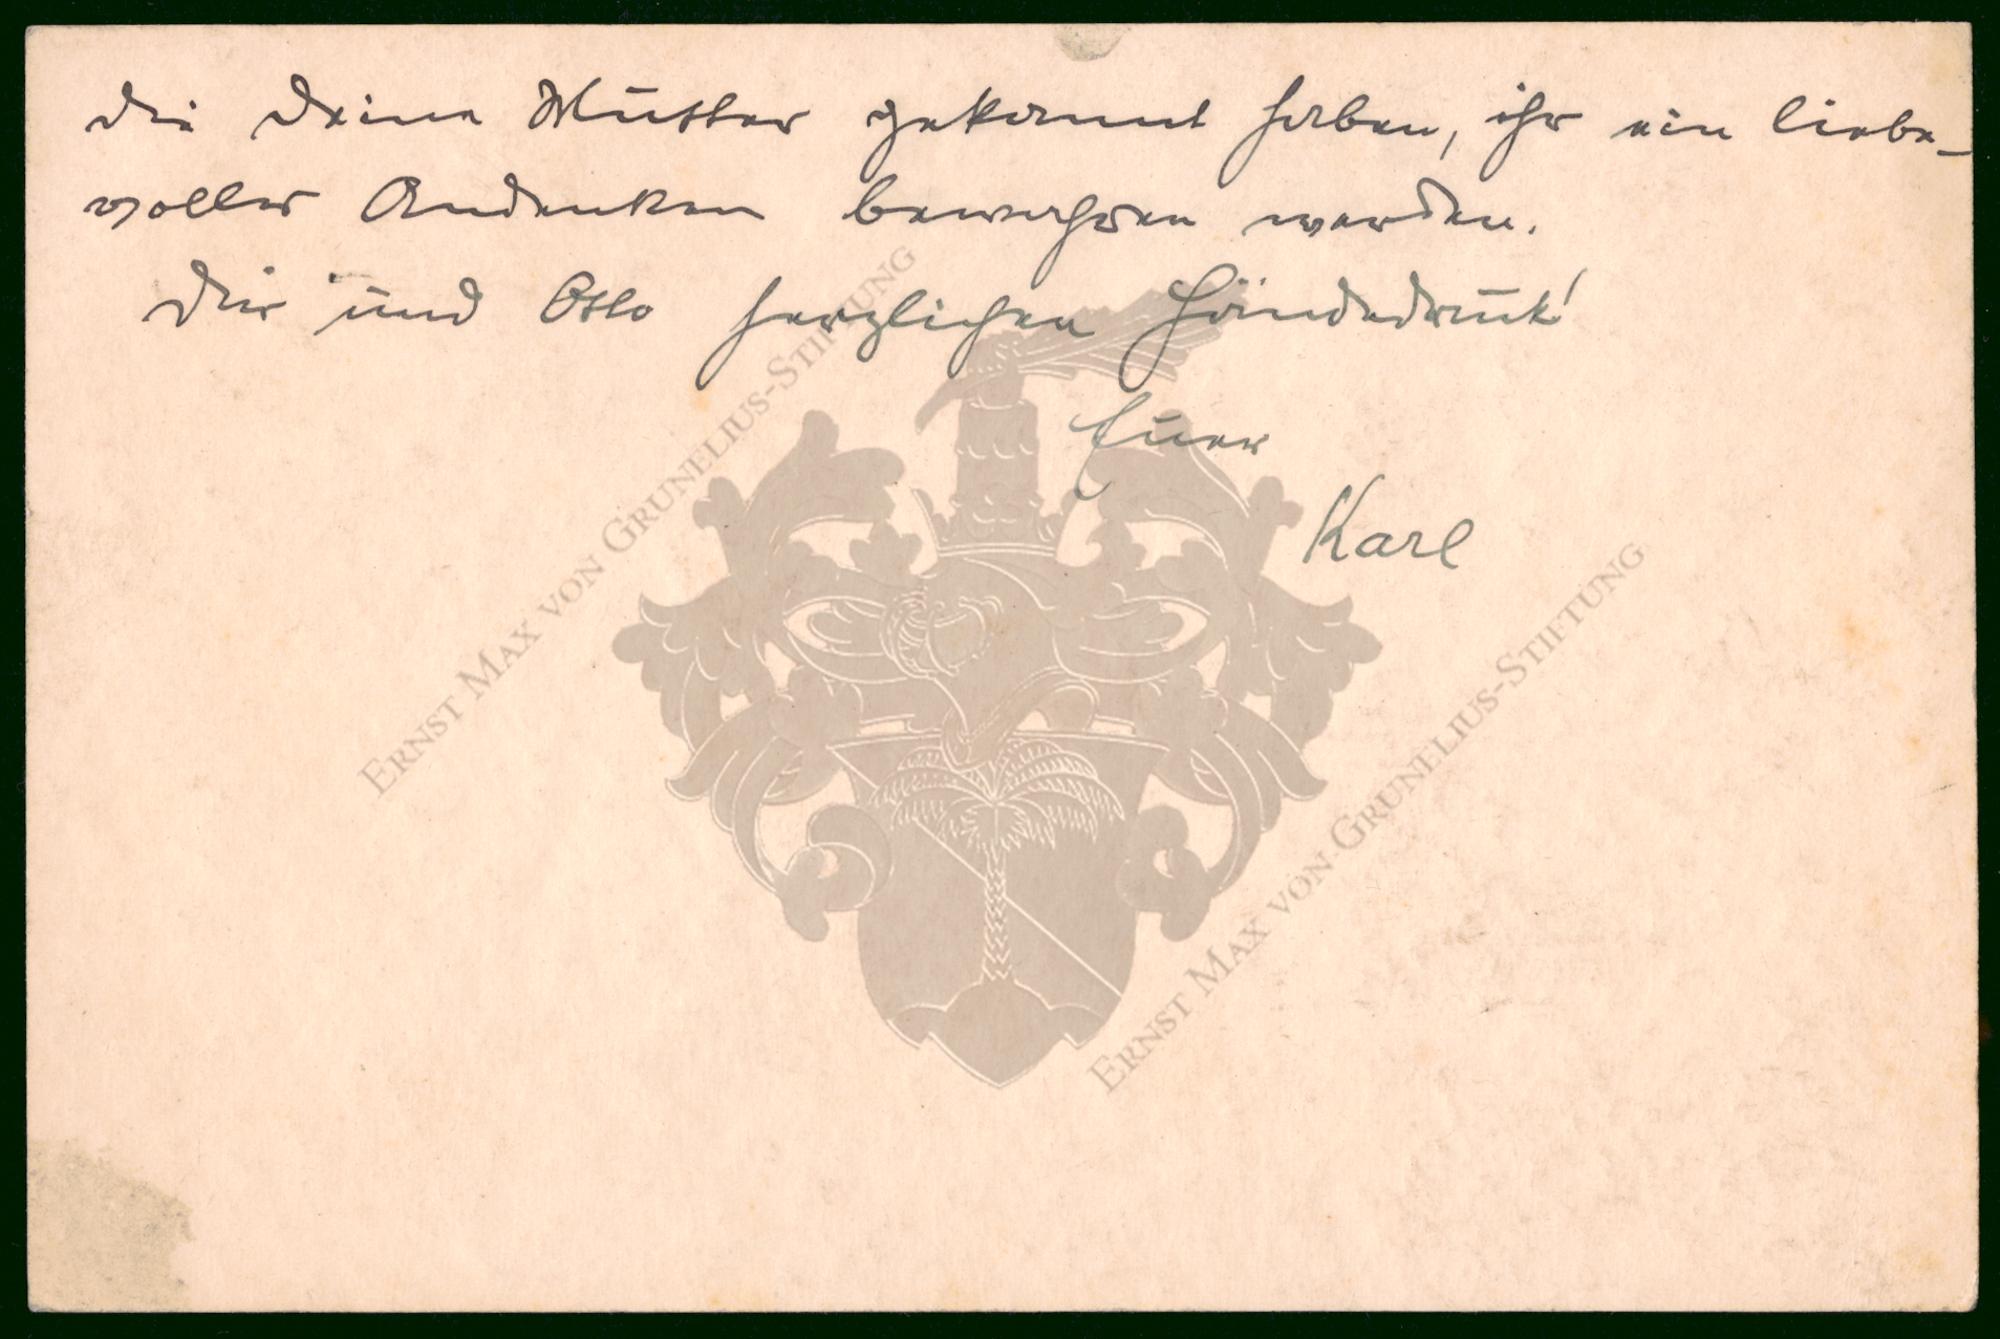 die Deine Mutter gekannt haben, ihr ein liebe-
volles Andenken bewahren werden.
Dir und Otto herzlichen Händedruck!
Euer
Karl
Ernst Max von Grunelius-Stiftung
Ernst Max von Grunelius-Stiftung